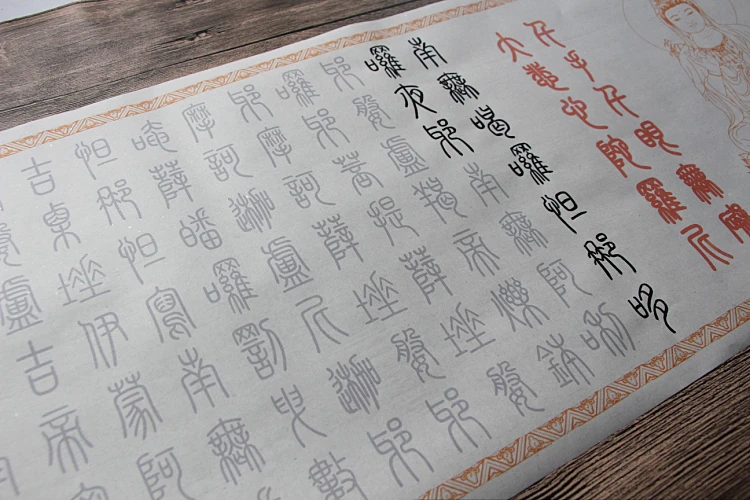 千手千眼無礙
大悲心陀羅尼
南無喝囉怛那哆
囉夜耶南無阿唎
耶婆盧羯帝爍鉢
囉耶菩提薩埵婆
耶摩訶薩埵婆耶
摩訶迦盧尼迦耶
唵薩皤囉罰曳數
怛那怛寫南無
吉栗埵伊蒙阿
婆盧吉帝